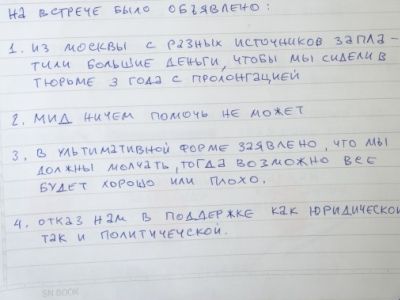 НА ВСТРЕЧЕ БЫЛО ОБЪЯВЛЕНО:
1. ИЗ МОСКВЫ С РАЗНЫХ ИСТОЧНИКОВ ЗАПЛА-
ТИЛИ БОЛЬШИЕ ДЕНЬГИ, ЧТОБЫ МЫ СИДЕЛИ В
ТЮРЬМЕ 3 ГОДА С ПРОЛОНГАЦИЕЙ
2. МИД НИЧЕМ ПОМОЧЬ НЕ МОЖЕТ
3. В УЛЬТИМАТИВНОЙ ФОРМЕ ЗАЯВЛЕНО, ЧТО МЫ
ДОЛЖНЫ МОЛЧАТЬ, ТОГДА ВОЗМОЖНО ВСЕ
БУДЕТ ХОРОШО ИЛИ ПЛОХО.
4. ОТКАЗ НАМ В ПОДДЕРЖКЕ КАК ЮРИДИЧЕСКОЙ
ТАК И ПОЛИТИЧЕЧСКОЙ.
SN BOOK